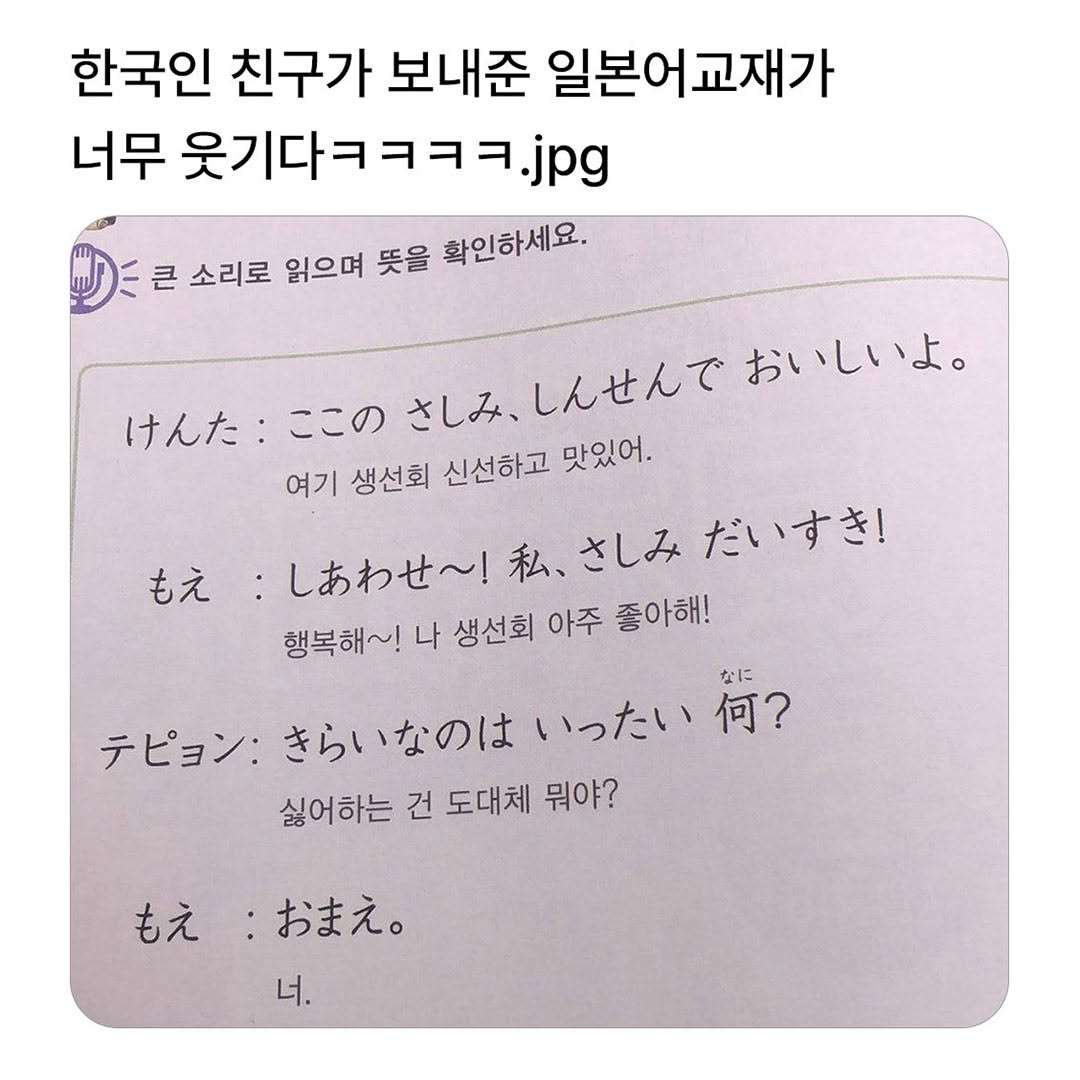 한국인 친구가 보내준 일본어교재가
너무 웃기다ㅋㅋㅋㅋ.jpg
큰 소리로 읽으며 뜻을 확인하세요.
けんた : ここの さしみ、しんせんで おいしいよ。
여기 생선회 신선하고 맛있어.
もえ : しあわせ~! 私、さしみ だいすき!
행복해~! 나 생선회 아주 좋아해!
なに
テピョン: きらいなのは いったい 何?
싫어하는 건 도대체 뭐야?
もえ : おまえ。
너.